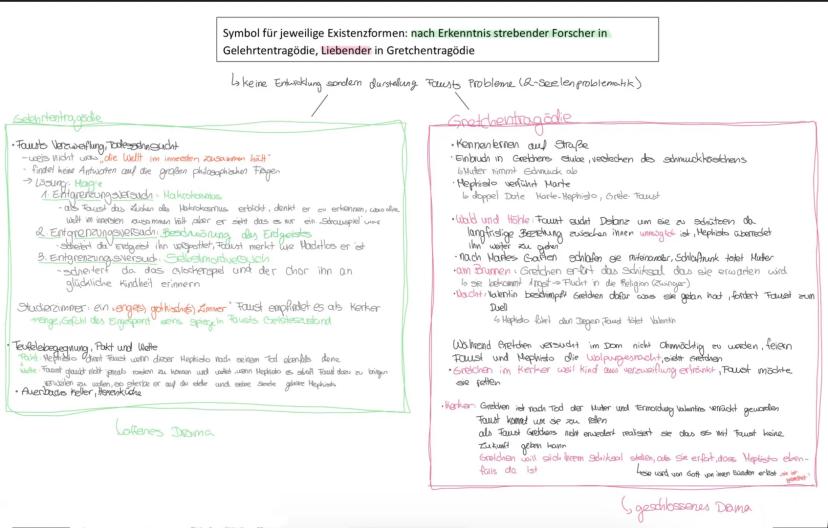 Symbol für jeweilige Existenzformen: nach Erkenntnis strebender Forscher in
Gelehrtentragödie, Liebender in Gretchentragödie
↳ keine Entwicklung sondern darstellung Fausts Probleme (2-seelenproblematik)
Gelehrtentragödie
• Fausts Verzweiflung, Todessehnsucht
- weiss nicht was „die Welt im innersten zusammen hält"
- findet keine Antworten auf die großen philosophischen Fragen
→ Lösung: Magie
1. Entgrenzungsversuch: Makrokosmus
- als Faust das Zeichen des Makrokosmus erblickt, denkt er zu erkennen, was die
Welt im innersten zusammen hält aber er sieht das es nur ein „Schauspiel" wäre
2. Entgrenzungsversuch: Beschwörung des Erdgeists
- scheitert da Erdgeist ihn verspottet, Faust merkt wie Machtlos er ist
3. Entgrenzungsversuch: Selbstmordversuch
- scheitert da das Glockenspiel und der Chor ihn an
glückliche Kindheit erinnern
Studierzimmer: ein „enge(s) gothische(s) Zimmer" Faust empfindet es als Kerker
→ enge, Gefühl des Eingesperrt seins spiegeln Fausts Geisteszustand
• Teufelsbegegnung, Pakt und Wette
Pakt: Mephisto dient Faust wenn dieser Mephisto nach seinem Tod ebenfalls diene
Wette: Faust glaubt nicht jemals rasten zu können und wettet wenn Mephisto es schafft Faust dazu zu bringen
verweilen zu wollen, so sterbe er auf der stelle und seine Seele gehöre Mephisto
• Auerbachs Keller, Hexenküche
↳ offenes Drama
Gretchentragödie
• Kennenlernen auf Straße
• Einbruch in Gretchens stube, verstecken des schmuckkästchens
↳ Mutter nimmt Schmuck ab
• Mephisto verführt Marte
↳ doppel Date Marte-Mephisto, Grete-Faust
• Wald und Höhle: Faust sucht Distanz um sie zu schützen da
langfristige Beziehung zwischen ihnen unmöglich ist, Mephisto überredet
ihn weiter zu gehen
• nach Martes Garten schlafen sie miteinander, Schlaftrunk tötet Mutter
• am Brunnen: Gretchen erfärt das Schicksal das sie erwarten wird
↳ sie bekommt Angst → Flucht in die Religion (Zwinger)
• Nacht: Valentin beschimpft Gretchen dafür was sie getan hat, fordert Faust zum
Duell
↳ Mephisto führt den Degen, Faust tötet Valentin
Während Gretchen versucht im Dom nicht Ohnmächtig zu werden, feiern
Faust und Mephisto die Walpurgisnacht, sieht Gretchen
• Gretchen im Kerker weil Kind aus verzweiflung ertränkt, Faust möchte
sie retten
• Kerker: Gretchen ist nach Tod der Mutter und Ermordung Valentins verrückt geworden
Faust kommt um sie zu retten
als Faust Gretchens nicht erwedert realisiert sie das es mit Faust keine
Zukunft geben kann
Gretchen will sich ihrem Schicksal stellen, als sie erfärt, dass Mephisto eben-
falls da ist
↳ sie wird von Gott von ihren Sünden erlöst „sie ist gerichtet"
↳ geschlossenes Drama